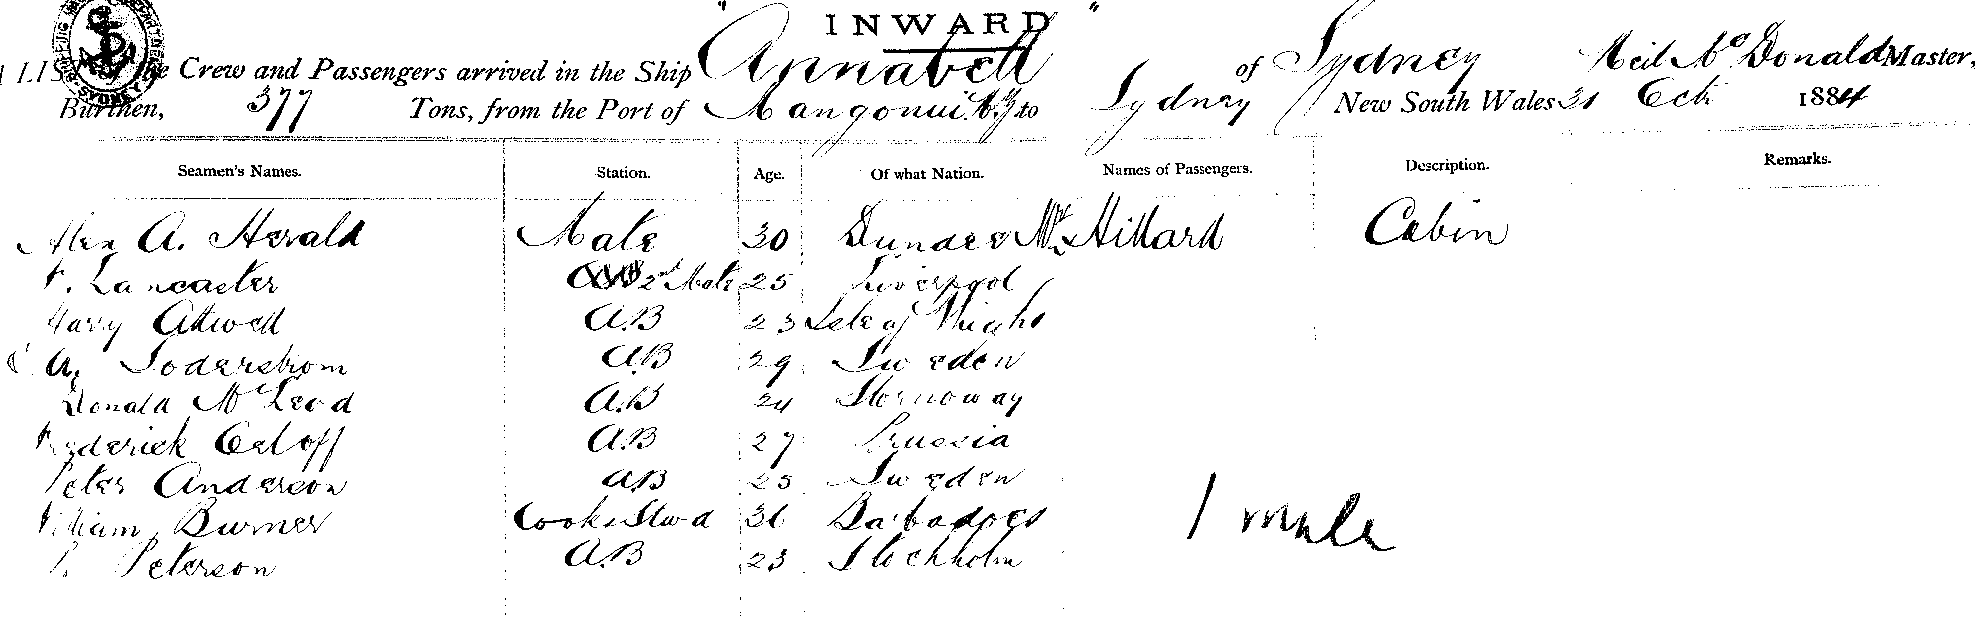 " INWARD "
A LIST of the Crew and Passengers arrived in the Ship Annabell of Sydney Neil McDonald Master,
Burthen, 377 Tons, from the Port of Mangonui N.Z to Sydney New South Wales 31 Oct 1884
Seamen's Names. Station. Age. Of what Nation. Names of Passengers. Description. Remarks.
Alex A. Herald Mate 30 Dundee Mr Hillard Cabin
F. Lancaster 2nd Mate 25 Liverpool
Harry Attwell A.B 23 Isle of Wight
A. Soderstrom A.B 29 Sweden
Donald McLeod A.B 24 Stornoway
Frederick A.B 27 Prussia
Peter Anderson A.B 25 Sweden
William Burner Cook & Stwd 36 Barbadoes
Peterson A.B 23 Stockholm
1 male